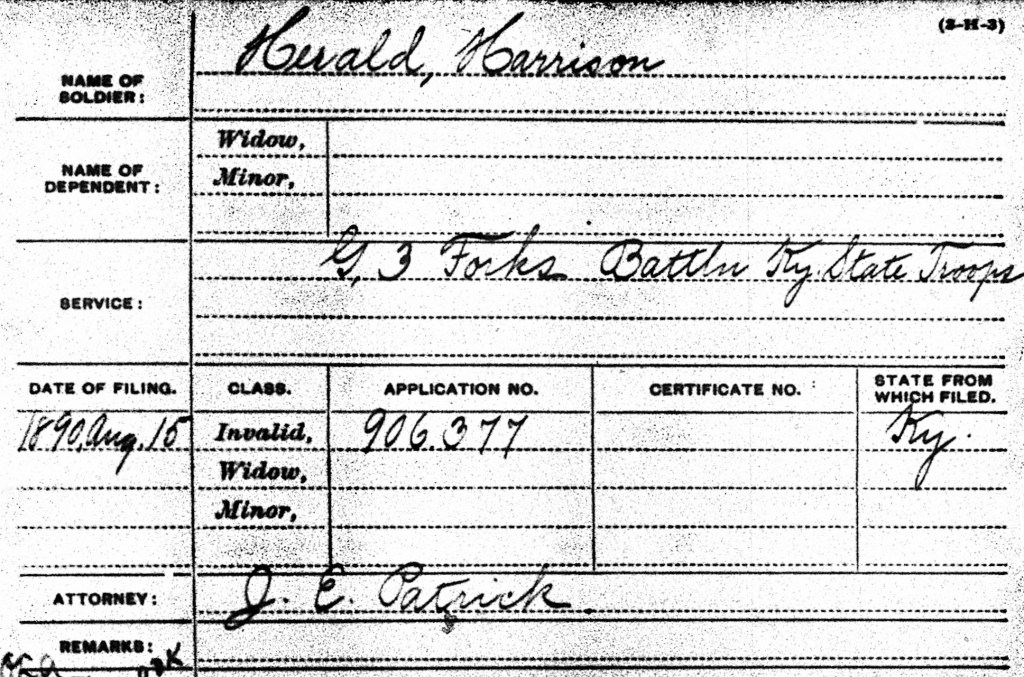 (3-H-3)
Herald, Harrison
NAME OF
SOLDIER:
NAME OF
DEPENDENT:
Widow,
Minor,
SERVICE:
G, 3 Forks Battln Ky. State Troops
DATE OF FILING. CLASS. APPLICATION NO. CERTIFICATE NO. STATE FROM
WHICH FILED.
1890, Aug. 15 Invalid, 906.377 Ky.
Widow,
Minor,
ATTORNEY: J. E. Patrick.
REMARKS: